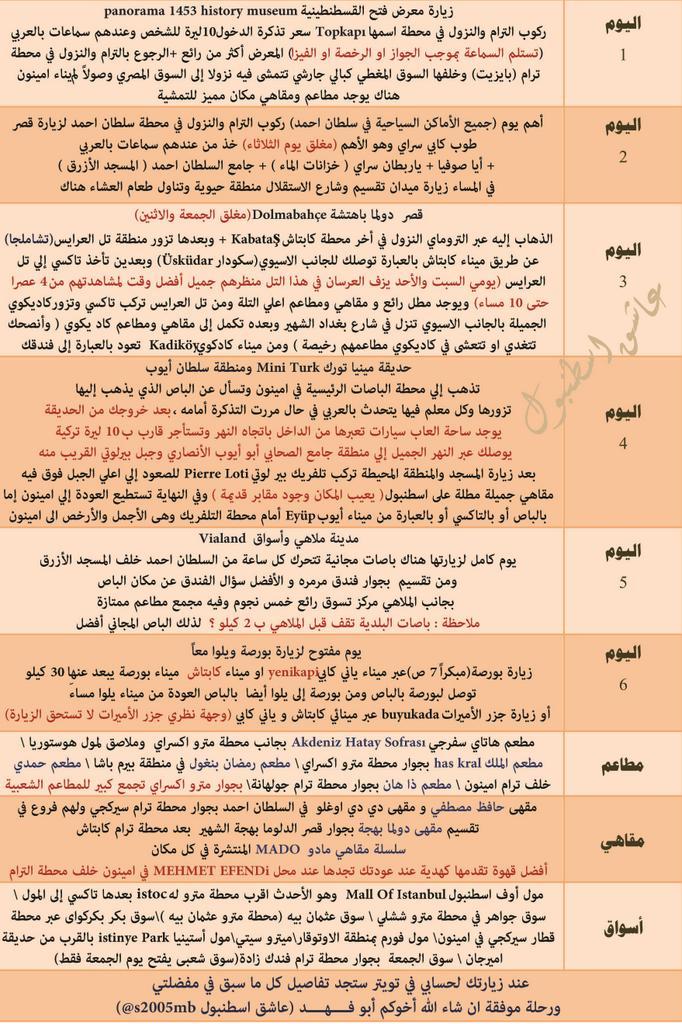 اليوم
1
زيارة معرض فتح القسطنطينية panorama 1453 history museum
ركوب الترام والنزول في محطة اسمها Topkapı سعر تذكرة الدخول10ليرة للشخص وعندهم سماعات بالعربي
(تستلم السماعة بموجب الجواز او الرخصة او الفيزا) المعرض أكثر من رائع +الرجوع بالترام والنزول في محطة
ترام (بايزيت) وخلفها السوق المغطي كبالي جارشي تتمشى فيه نزولا إلى السوق المصري وصولاً لميناء امينون
هناك يوجد مطاعم ومقاهي مكان مميز للتمشية
اليوم
2
أهم يوم (جميع الأماكن السياحية في سلطان احمد) ركوب الترام والنزول في محطة سلطان احمد لزيارة قصر
طوب كابي سراي وهو الأهم (مغلق يوم الثلاثاء) خذ من عندهم سماعات بالعربي
+ أيا صوفيا + ياربطان سراي ( خزانات الماء ) + جامع السلطان احمد ( المسجد الأزرق )
في المساء زيارة ميدان تقسيم وشارع الاستقلال منطقة حيوية وتناول طعام العشاء هناك
اليوم
3
قصر دولما باهتشة Dolmabahçe(مغلق الجمعة والاثنين)
الذهاب إليه عبر التروماي النزول في أخر محطة كاباتاش Kabataş + وبعدها تزور منطقة تل العرايس(تشاملجا)
عن طريق ميناء كاباتش بالعبارة توصلك للجانب الاسيوي(سكودار Üsküdar) وبعدين تأخذ تاكسي إلي تل
العرايس (يومي السبت والأحد يزف العرسان في هذا التل منظرهم جميل أفضل وقت لمشاهدتهم من 4 عصرا
حتى 10 مساء) ويوجد مطل رائع و مقاهي ومطاعم اعلي التلة ومن تل العرايس تركب تاكسي وتزوركاديكوي
الجميلة بالجانب الاسيوي تنزل في شارع بغداد الشهير وبعده تكمل إلى مقاهي ومطاعم كاد يكوي ( وأنصحك
تتغدي او تتعشى في كاديكوي مطاعمهم رخيصة ) ومن ميناء كادكويKadiköy تعود بالعبارة إلى فندقك
اليوم
4
حديقة مينيا تورك Mini Turk ومنطقة سلطان أيوب
تذهب إلي محطة الباصات الرئيسية في امينون وتسأل عن الباص الذي يذهب إليها
تزورها وكل معلم فيها يتحدث بالعربي في حال مررت التذكرة أمامه ،بعد خروجك من الحديقة
يوجد ساحة العاب سيارات تعبرها من الداخل باتجاه النهر وتستأجر قارب ب 10 ليرة تركية
يوصلك عبر النهر الجميل إلي منطقة جامع الصحابي أبو أيوب الأنصاري وجبل بيرلوتي القريب منه
بعد زيارة المسجد والمنطقة المحيطة تركب تلفريك بير لوتي Pierre Loti للصعود إلي اعلي الجبل فوق فيه
مقاهي جميلة مطلة على اسطنبول( يعيب المكان وجود مقابر قديمة ) وفي النهاية تستطيع العودة إلي امينون إما
بالباص أو بالتاكسي أو بالعبارة من ميناء أيوبEyüp أمام محطة التلفريك وهى الأجمل والأرخص الى امينون
اليوم
5
مدينة ملاهي وأسواق Vialand
يوم كامل لزيارتها هناك باصات مجانية تتحرك كل ساعة من السلطان احمد خلف المسجد الأزرق
ومن تقسيم بجوار فندق مرمره و الأفضل سؤال الفندق عن مكان الباص
بجانب الملاهي مركز تسوق رائع خمس نجوم وفيه مجمع مطاعم ممتازة
ملاحظة : باصات البلدية تقف قبل الملاهي ب 2 كيلو ؟ لذلك الباص المجاني أفضل
اليوم
6
يوم مفتوح لزيارة بورصة ويلوا معاً
زيارة بورصة(مبكراً 7 ص)عبر ميناء ياني كابيyenikapi او ميناء كاباتش ميناء بورصة يبعد عنها 30 كيلو
توصل لبورصة بالباص ومن بورصة إلى يلوا أيضا بالباص العودة من ميناء يلوا مساءً
أو زيارة جزر الأميرات buyukada عبر مينائي كاباتش و ياني كابي (وجهة نظري جزر الأميرات لا تستحق الزيارة)
مطاعم
مطعم هاتاي سفرجي Akdeniz Hatay Sofrası بجانب محطة مترو اكسراي وملاصق لمول هوستوريا \
مطعم الملك has kral بجوار محطة مترو اكسراي \ مطعم رمضان بنغول في منطقة بيرم باشا \ مطعم حمدي
خلف ترام امينون \ مطعم ذا هان بجوار محطة ترام جولهانة\ بجوار مترو اكسراي تجمع كبير للمطاعم الشعبية
مقاهي
مقهى حافظ مصطفي و مقهى دي دي اوغلو في السلطان احمد بجوار محطة ترام سيركجي ولهم فروع في
تقسيم مقهى دولما بهجة بجوار قصر الدلوما بهجة الشهير بعد محطة ترام كاباتش
سلسلة مقاهي مادو MADO المنتشرة في كل مكان
أفضل قهوة تقدمها كهدية عند عودتك تجدها عند محل MEHMET EFENDi في امينون خلف محطة الترام
أسواق
مول أوف اسطنبول Mall Of Istanbul وهو الأحدث اقرب محطة مترو له istoc بعدها تاكسي إلى المول \
سوق جواهر في محطة مترو ششلي \ سوق عثمان بيه (محطة مترو عثمان بيه )\سوق بكر بكركواى عبر محطة
قطار سيركجي في امينون\ مول فورم بمنطقة الاوتوقار\ميترو سيتي\مول أستينيا istinye Park بالقرب من حديقة
اميرجان \ سوق الجمعة بجوار محطة ترام فندك زادة(سوق شعبى يفتح يوم الجمعة فقط)
عند زيارتك لحسابي في تويتر ستجد تفاصيل كل ما سبق في مفضلتي
ورحلة موفقة ان شاء الله أخوكم أبو فــهــد (عاشق اسطنبول s2005mb@)
عاشق اسطنبول